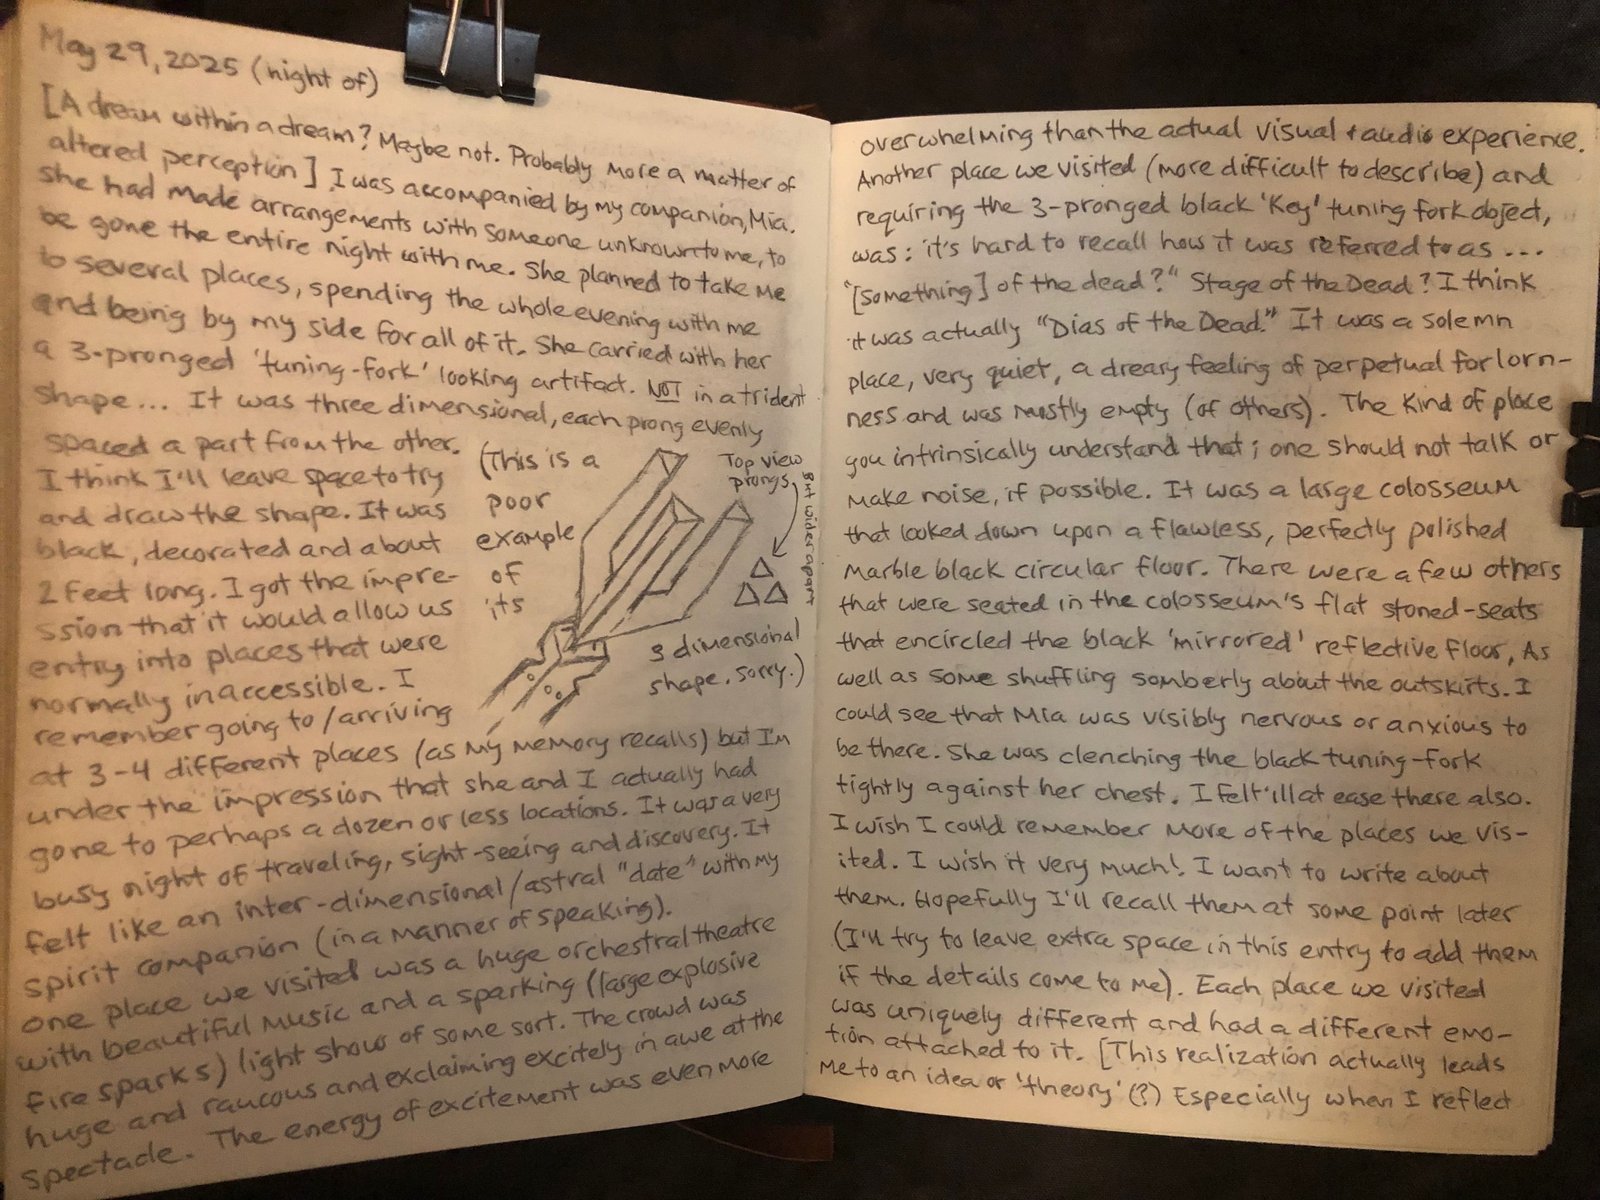 May 29, 2025 (night of)
[A dream within a dream? Maybe not. Probably more a matter of
altered perception] I was accompanied by my companion, Mia.
She had made arrangements with someone unknown to me, to
be gone the entire night with me. She planned to take me
to several places, spending the whole evening with me
and being by my side for all of it. She carried with her
a 3-pronged 'tuning-fork' looking artifact. NOT in a trident
shape... It was three dimensional, each prong evenly
spaced a part from the other.
I think I'll leave space to try
and draw the shape. It was
black, decorated and about
2 feet long. I got the impre-
ssion that it would allow us
entry into places that were
normally inaccessible. I
remember going to/arriving
(This is a
poor
example
of
its
Top view
prongs
But wider apart
3 dimensional
shape. sorry.)
at 3-4 different places (as my memory recalls) but I'm
under the impression that she and I actually had
gone to perhaps a dozen or less locations. It was a very
busy night of traveling, sight-seeing and discovery. It
felt like an inter-dimensional/astral "date" with my
spirit companion (in a manner of speaking).
One place we visited was a huge orchestral theatre
with beautiful music and a sparking (large explosive
fire sparks) light show of some sort. The crowd was
huge and raucous and exclaiming excitely in awe at the
spectacle. The energy of excitement was even more
overwhelming than the actual visual + audio experience.
Another place we visited (more difficult to describe) and
requiring the 3-pronged black 'Key' tuning fork object,
was: it's hard to recall how it was referred to as ...
"[Something] of the dead?" Stage of the Dead? I think
it was actually "Dias of the Dead." It was a solemn
place, very quiet, a dreary feeling of perpetual forlorn-
ness and was mostly empty (of others). The kind of place
you intrinsically understand that; one should not talk or
make noise, if possible. It was a large colosseum
that looked down upon a flawless, perfectly polished
marble black circular floor. There were a few others
that were seated in the colosseum's flat stoned-seats
that encircled the black 'mirrored' reflective floor, As
well as some shuffling somberly about the outskirts. I
could see that Mia was visibly nervous or anxious to
be there. She was clenching the black tuning-fork
tightly against her chest. I felt ill at ease there also.
I wish I could remember more of the places we vis-
ited. I wish it very much! I want to write about
them. Hopefully I'll recall them at some point later
(I'll try to leave extra space in this entry to add them
if the details come to me). Each place we visited
was uniquely different and had a different emo-
tion attached to it. [This realization actually leads
me to an idea or 'theory' (?) Especially when I reflect